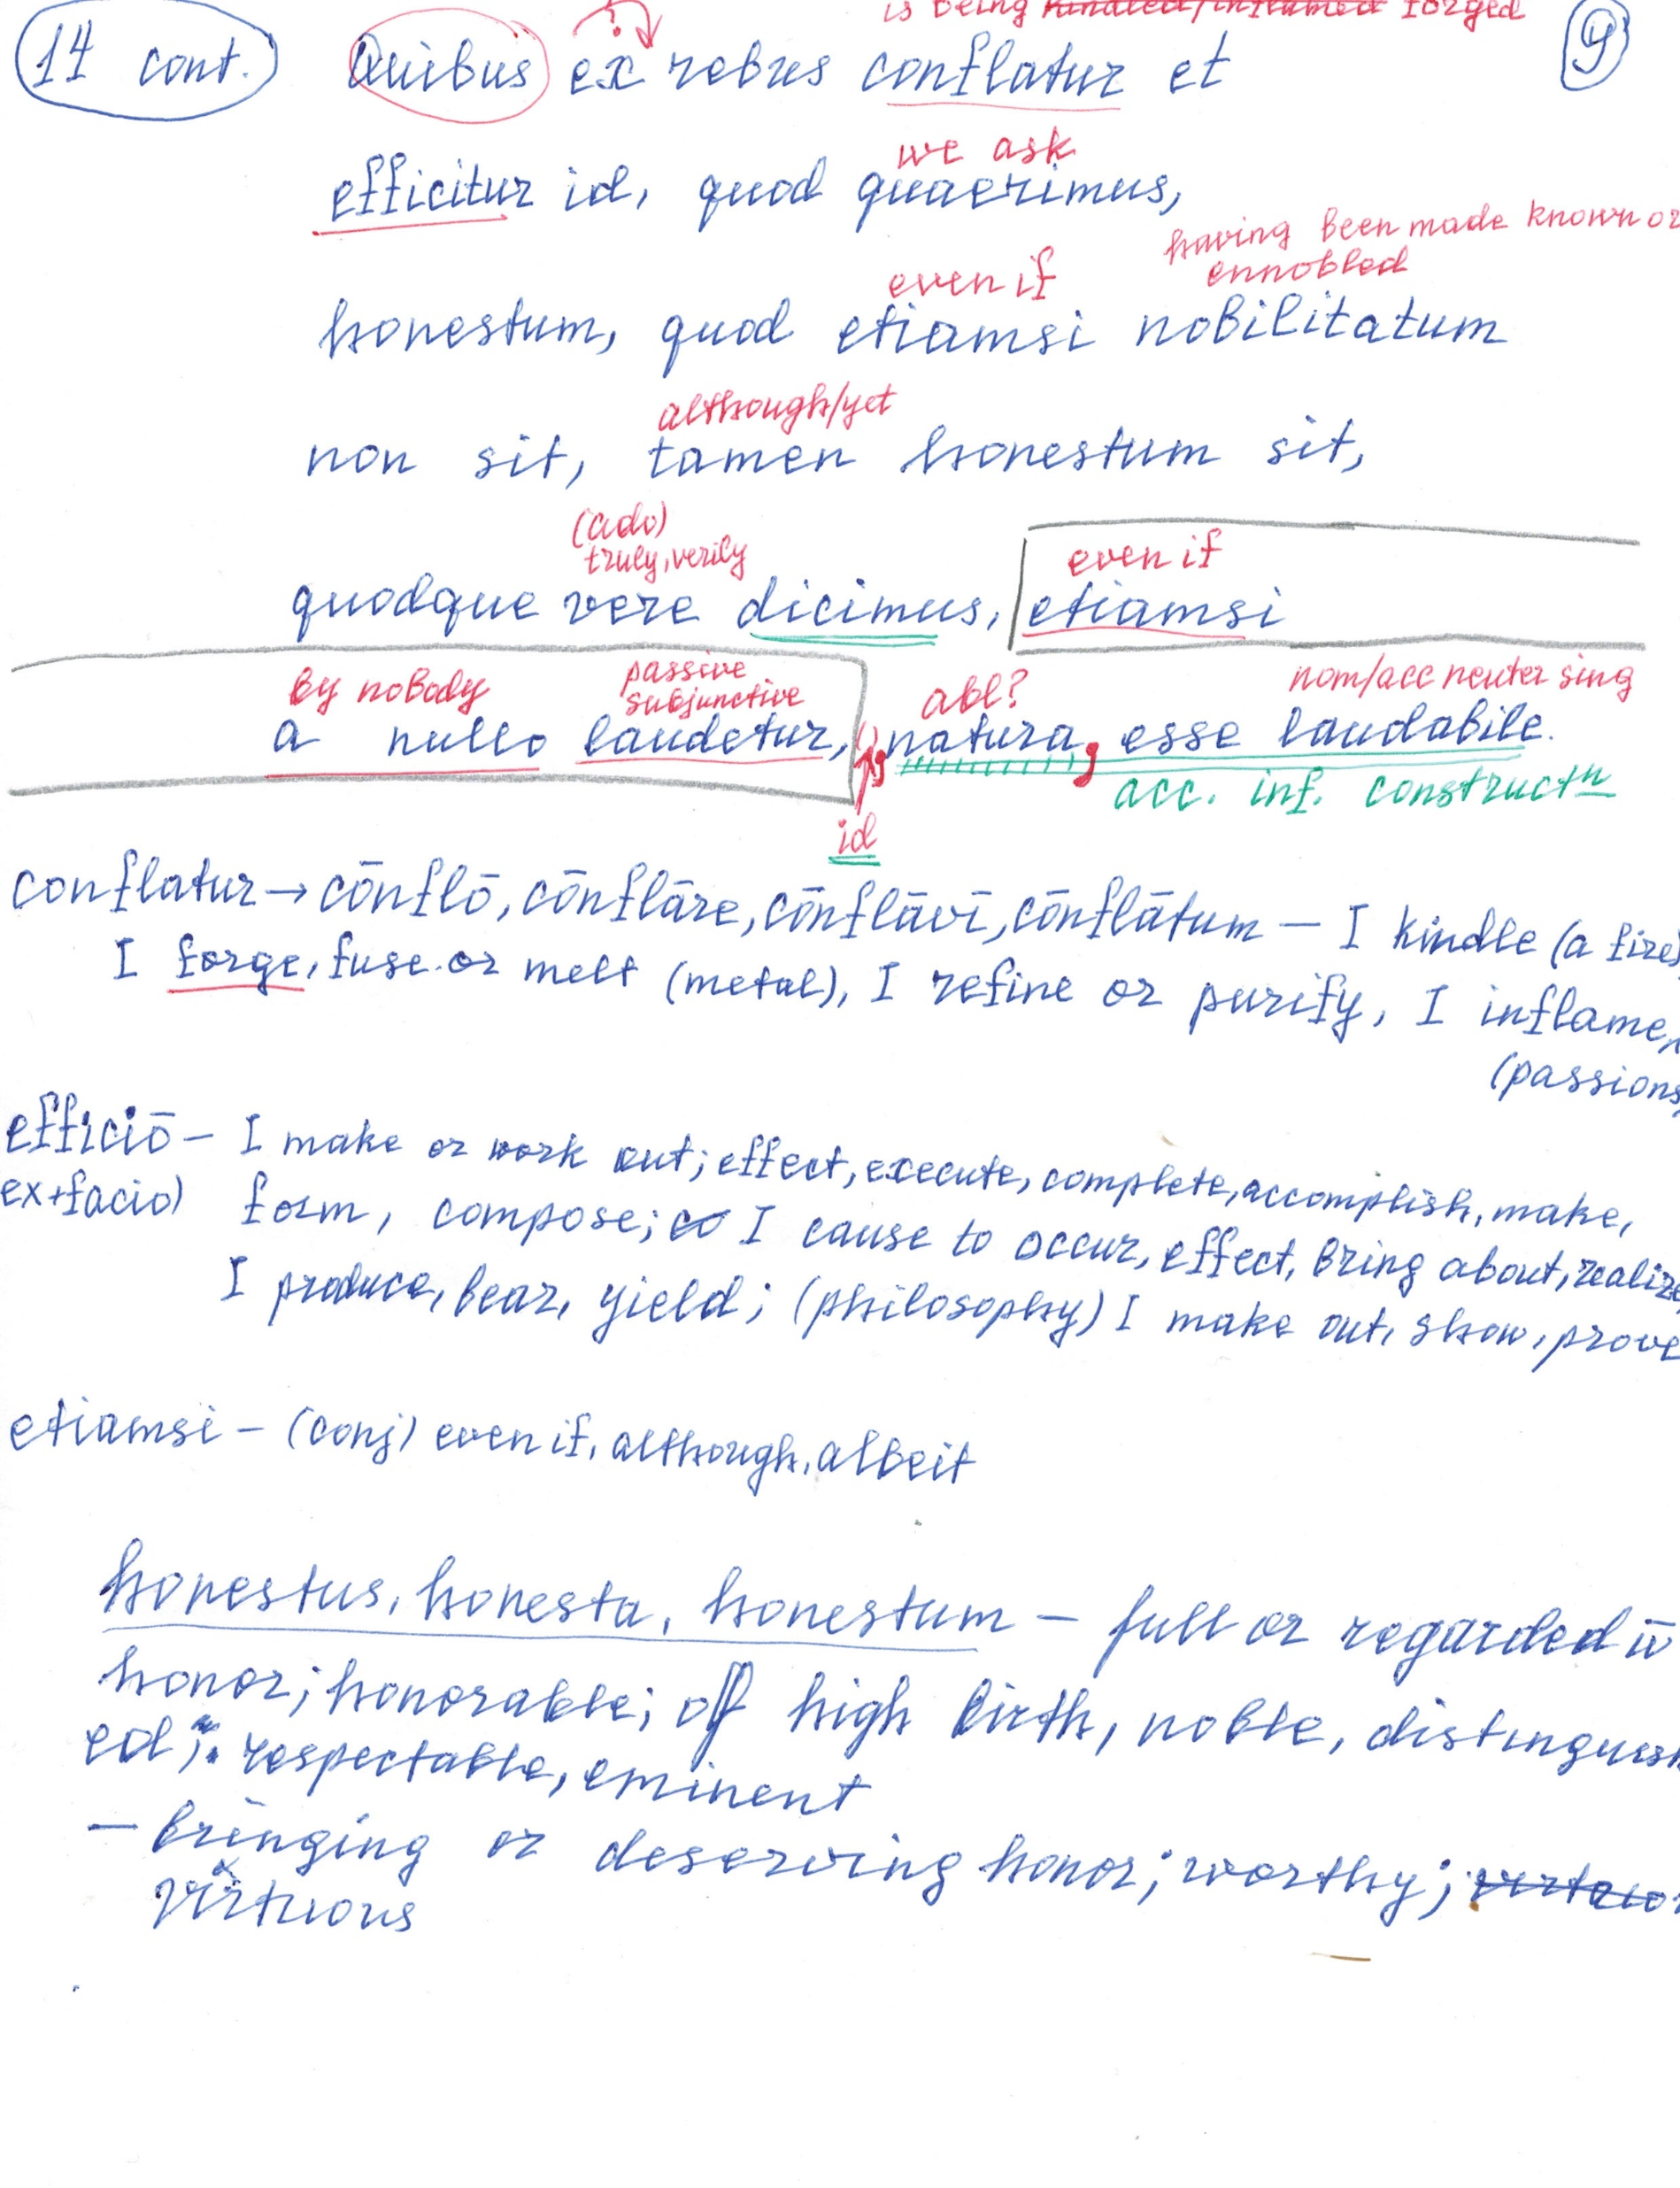 is being kindled/inflamed forged
14 cont. Quibus ex rebus conflatur et 9
?
we ask
efficitur id, quod quaerimus,
having been made known or
even if ennobled
honestum, quod etiamsi nobilitatum
although/yet
non sit, tamen honestum sit,
(adv)
truly, verily even if
quodque vere dicimus, etiamsi
by nobody passive subjunctive abl? nom/acc neuter sing
a nullo laudetur, natura, esse laudabile.
acc. inf. constructn
id
conflatur → cōnflō, cōnflāre, cōnflāvī, cōnflātum – I kindle (a fire)
I forge, fuse or melt (metal), I refine or purify, I inflame
(passions
efficiō – I make or work out; effect, execute, complete, accomplish, make,
ex+facio) form, compose; co I cause to occur, effect, bring about, realize
I produce, bear, yield; (philosophy) I make out, show, prove
etiamsi – (conj) even if, although, albeit
honestus, honesta, honestum – full or regarded w̄
honor; honorable; off high birth, noble, distinguish
ed; respectable, eminent
– bringing or deserving honor; worthy;
virtuous